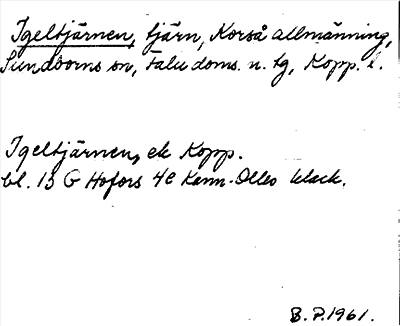 Igeltjärnen, tjärn, Korså allmänning,
Sundborns sn, Falu doms. n. tg, Kopp. l.
Igeltjärnen, ek Kopp.
bl. 13 G Hofors 4e Kenn-Olles klack.
B. P. 1961.